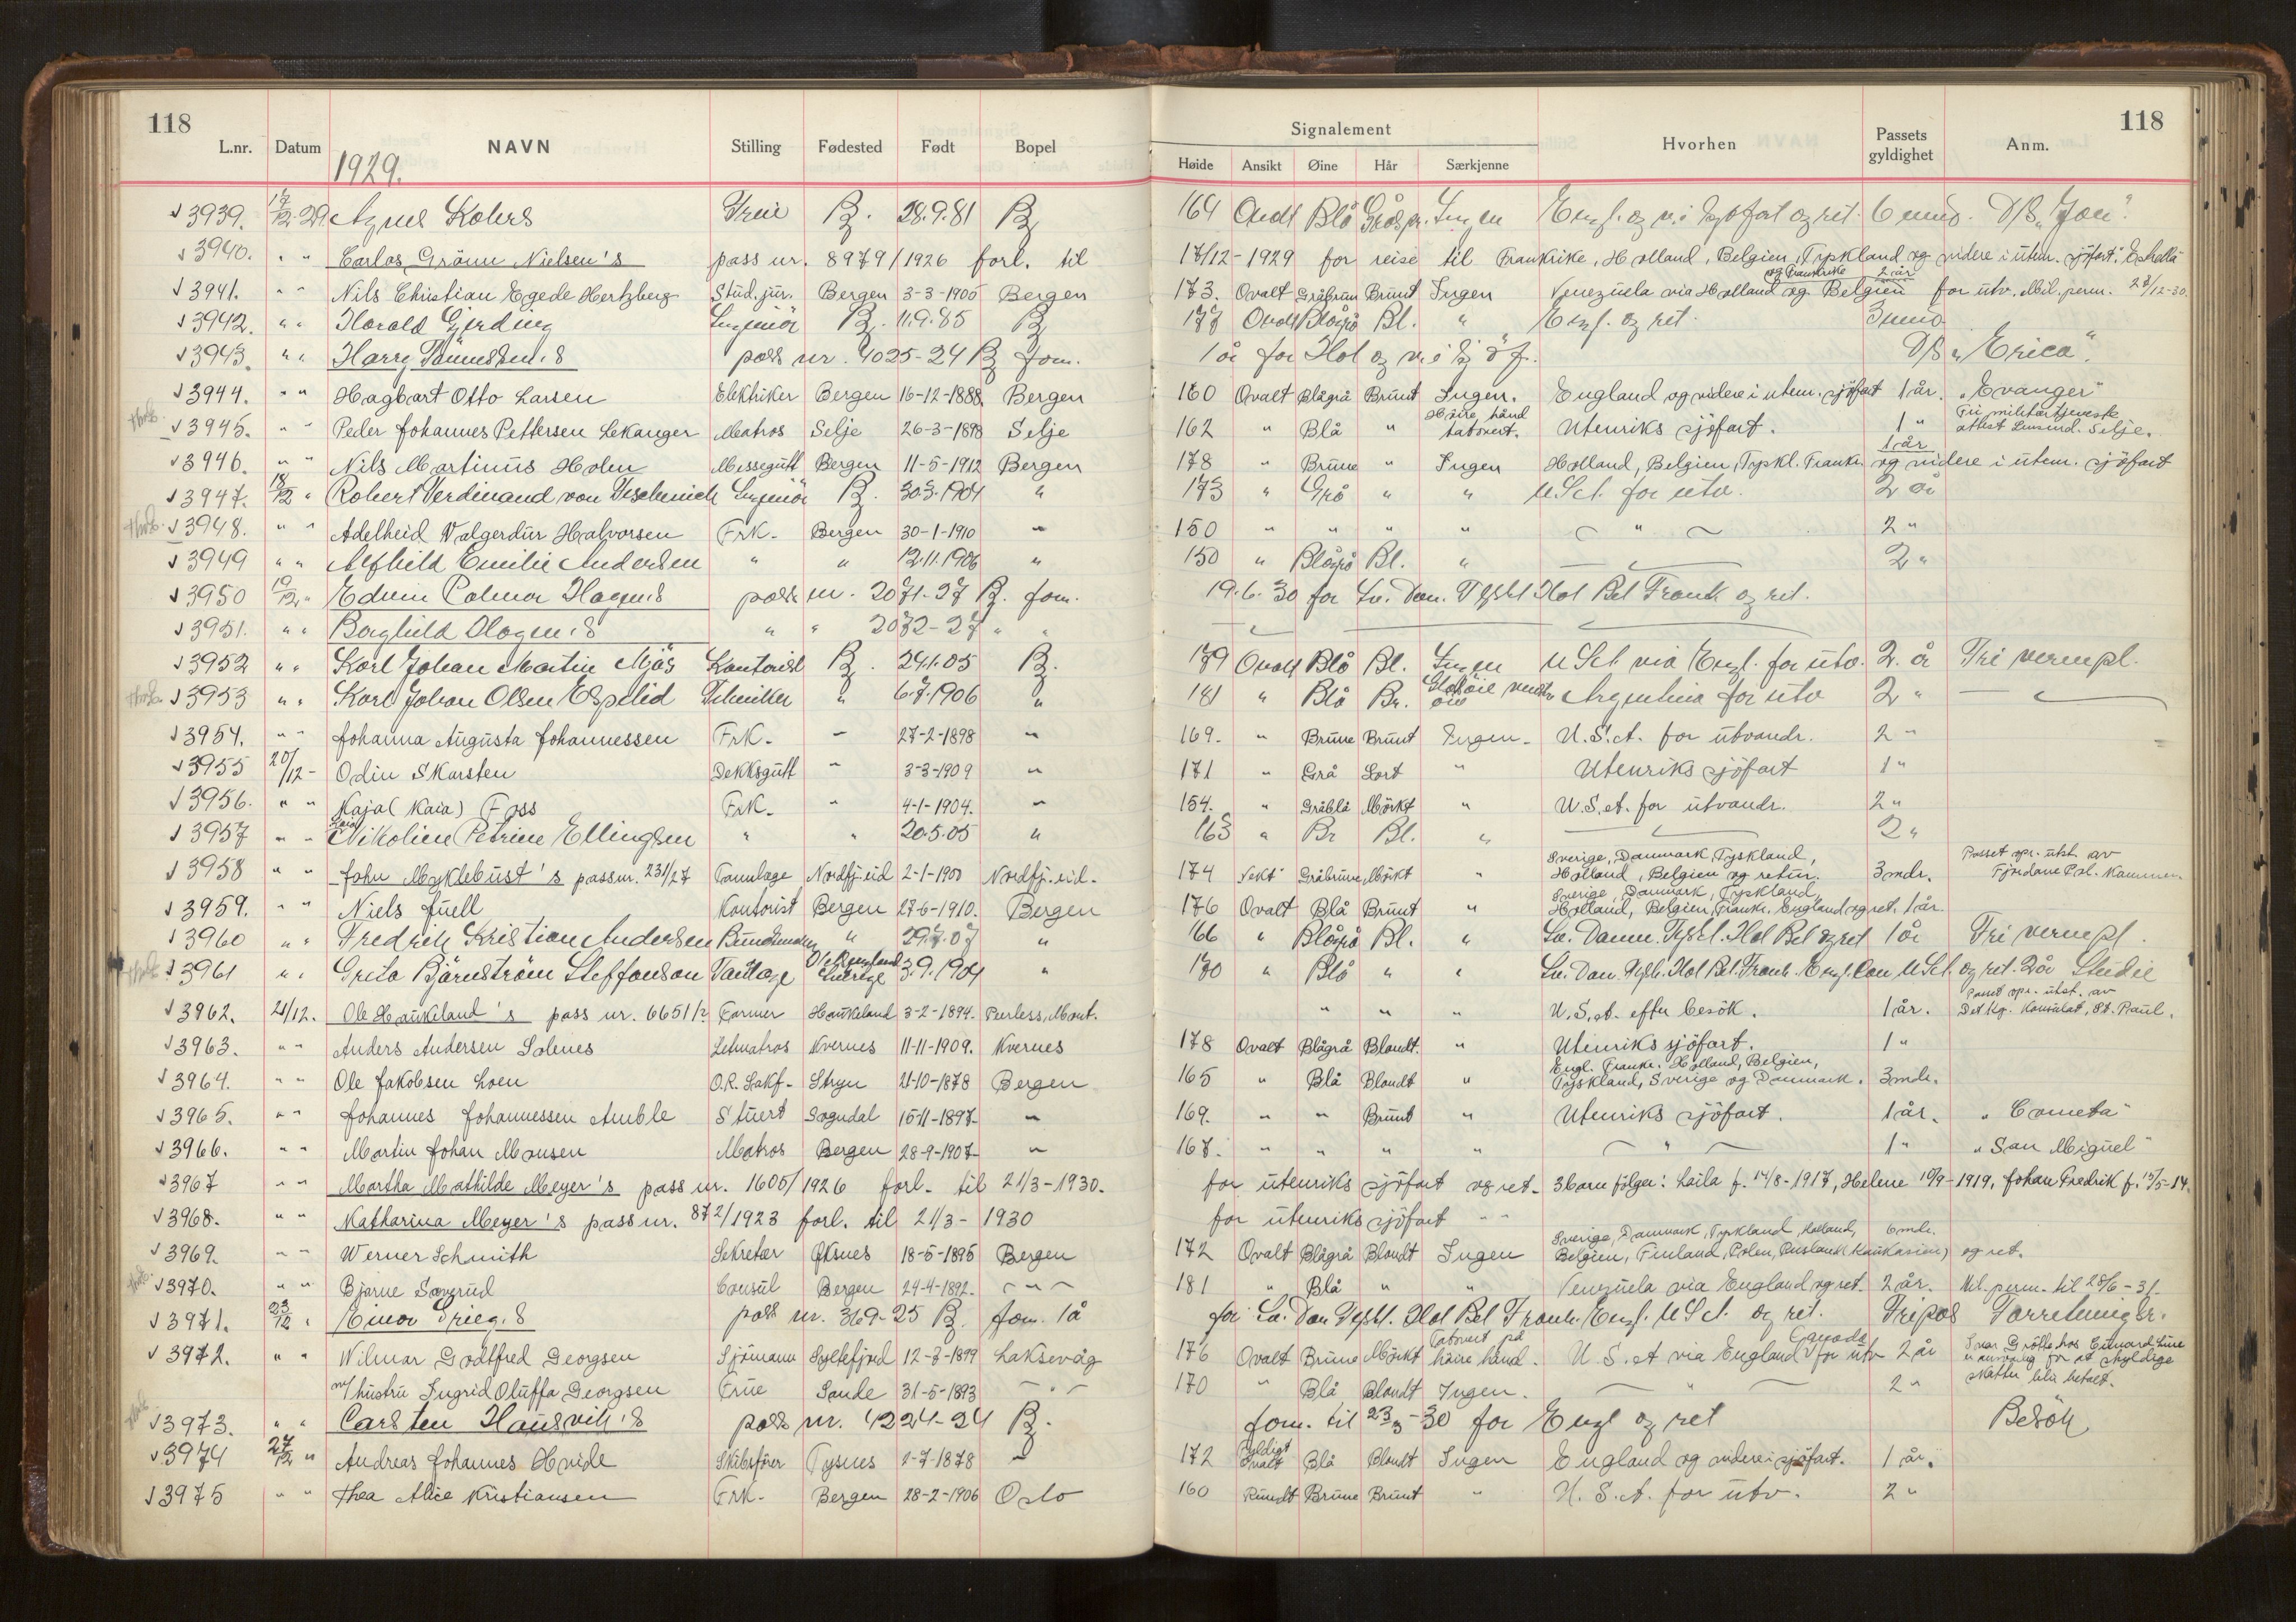 118
118
L.nr. Datum NAVN Stilling Fødested Født Bopel
Signalement
Høide Ansikt Øine Hår Særkjenne Hvorhen Passets gyldighet Anm.
1929.
3939. 17/12-29. Agnes Frue B. 28.9.81 B 164 Ovalt Blå Ingen Engl. og v. i og ret. 6 mnd. D/S
3940. " " Carlos Grönn Nielsen's pass nr. 8979/1926 forl. til 17/12-1929 for reise til Frankrike, Holland, Belgien, Tyskland og videre i utenr. sjöfart.
og Frankrike 2 år
3941. " " Nils Christian Egede Hertzberg Stud. jur. Bergen 3-3-1905 Bergen 173. Ovalt Gråbrun Brunt Ingen Venezuela via Holland og Belgien for utv. Mil. perm. 27/12-30.
3942. " " Harald Gjerding Ingeniör B. 11.9.85 B 177 Ovalt Blågrå Bl. " Engl. og ret. 3 mnd
3943. " " Harry pass nr. 4025-24 B forn. 1 år for Hol og v. i sjöf. D/S "Erica".
3944. " " Hagbart Otto Larsen Elektriker Bergen 16-12-1888. Bergen 160 Ovalt Blågrå Brunt Ingen. England og videre i utenr. sjöfart 1 år. "Evanger"
3945. " " Peder Johannes Pettersen Lekanger Matros Selje 26-3-1898 Selje 162 " Blå " Höire hånd tatovert. Utenriks sjöfart. 1 " Fri militärtjeneste attest Selje.
3946. " " Nils Martinus Holm Messegutt Bergen 11-5-1912 Bergen 178 " Brune " Ingen Holland, Belgien, Tyskl. Frankr. og videre i utenr. sjöfart 1 år
3947. 18/12 " Robert Ferdinand von Ingeniör B. 30.3.1904 " 173 " Grå " " U St. for utv. 2 år
3948. " " Adelheid Valgerdur Halvorsen Frk. Bergen 30-1-1910 " 150 " " " " " 2 "
3949 " " Alfhild Emilie Andersen " " 12.11.1906 " 150 " Blågrå Bl. " " 2 "
3950 19/12 " Edvin Palmar Hagen's pass nr. 2071-27 B. forn. 19.6.30 for Sv. Dan. Tyskl Hol Bel Frank og ret.
3951. " " Borghild Hagen's " " 2072-27 " "
3952 " " Karl Johan Martin Mjös Kontorist B. 24.1.05 B. 179 Ovalt Blå Bl. Ingen U St. via Engl. for utv. 2 år Fri vernepl.
3953 " " Karl Johan Olsen Espelid Tekniker " 6.7.1906 " 181 " Blå Br. Argentina for utv 2 "
3954. " " Johanna Augusta Johannessen Frk. " 27-2-1898 " 169. " Brune Brunt Ingen U.S.A. for utvandr. 2 "
3955 20/12 - Odin Skarsten Dekksgutt " 3-3-1909 " 171 " Grå Sort " Utenriks sjöfart 1 "
3956. " " Kaja (Kaia) Foss Frk. " 4-1-1904. " 154. " Gråblå Mörkt " U.S.A. for utvandr. 2 "
3957 " " Nikoline Petrine Ellingsen " " 20.5.05 " 163 " Br Bl. " " 2 "
3958 " " John Myklebust's pass nr. 231/27 Tannlæge Nordfj.eid 2-1-1900 Nordfj.eid. 174 Gråbrune Mörkt " Sverige, Danmark, Tyskland, Holland, Belgien og retur. 3 mdr. Passet opr. utst. av Fjordane Pol. Kammer
3959. " " Niels Juell Kontorist Bergen 27-6-1910. Bergen 176 Ovalt Blå Brunt " Sverige, Danmark, Tyskland, Holland, Belgien, Frankr. England og ret. 1 år.
3960 " " Fredrik Kristian Andersen " 29.7.07 " 166 " Blågrå Bl. " Sv. Danm. Tyskl. Hol Bel og ret 1 år Fri vernepl.
3961 " " Greta Bjärnström Steffanson Tandlæge Sverige 3.9.1904 " 170 " Blå " " Sv. Dan. Tyskl. Hol Bel. Frank. Engl. Can U St. og ret. 2 år Studie
3962. 21/12. Ole Haukeland's pass nr. 6651/2 Farmer Haukeland 3-2-1894. Peerless, Mont. " " " U.S.A. efter besök. 1 år. Passet opr. utst. av Det Kg. Konsulat, St. Paul.
3963. " " Anders Andersen Solnes Letmatros Kvernes 11-11-1909. Kvernes 178 Ovalt Blågrå Blondt. " Utenriks sjöfart. 1 "
3964. " " Ole Jakobsen Loen O.R. Sakf. Stryn 21-10-1878 Bergen 165 " Blå Blondt " Engl. Frankr. Holland, Belgien, Tyskland, Sverige og Danmark. 3 mdr.
3965. " " Johannes Johannessen Amble Stuert Sogndal 15-11-1897. " 169. " " Brunt " Utenriks sjöfart. 1 år. "Cometa"
3966. " " Martin Johan Monsen Matros Bergen 28-9-1907 " 167. " " " " " 1 " "San Miguel"
3967 " " Martha Mathilde Meyer's pass nr. 1605/1926 forl. til 21/3-1930. for utenriks sjöfart og ret. 3 barn følger: Laila f. 14/8-1917, Helene 10/9-1919, Johan Fredrik f. 15/5-14.
3968. " " Katharina Meyer's pass nr. 872/1923 forl. til 21/3-1930 for utenriks sjöfart " "
3969. " " Werner Schmith Sekretær Öksnes 18-5-1895 Bergen 172 Ovalt Blågrå Blondt Ingen Sverige, Danmark, Tyskland, Holland, Belgien, Finland, Polen, Rusland (Kaukasien) og ret. 6 mdr.
3970. " " Bjarne Sangrud Consul Bergen 24-4-1892. " 181 " Blå " " Venezuela via England og ret. 2 år. Mil. perm. til 28/6-31.
3971. 23/12 " Einar Grieg's pass nr. 369-25 B. forn. 1 å for Sv. Dan Tyskl. Hol Bel Frank. Engl. U St. og ret. Forretninger.
3972. " " Wilmar Godtfred Georgsen Sjömann Syltefjord 12-7-1899 Laksevåg 176 Ovalt Brune Mörkt Tatovert på höire hånd. U.S.A via England Canada for utv 2 år
m/ hustru Ingrid Oluffa Georgsen Frue Sande 31-5-1893 " 170 " Blå Blondt Ingen. " 2 " skatter blir betalt.
3973. " " Carsten Hausvik's pass nr. 4224-24 B. forn. til 23/3-30 for Engl og ret Besök
3974 27/12 " Andreas Johannes Hvide Skibsfører Tysnes 2-7-1878 " 172 Fyldigt Ovalt Blå Blondt Ingen England og videre i sjöfart. 1 år.
3975 " " Thea Alice Kristiansen Frk. Bergen 28-2-1906 Oslo 160 Rundt Brune Brunt " U.S.A. for utv. 2 "